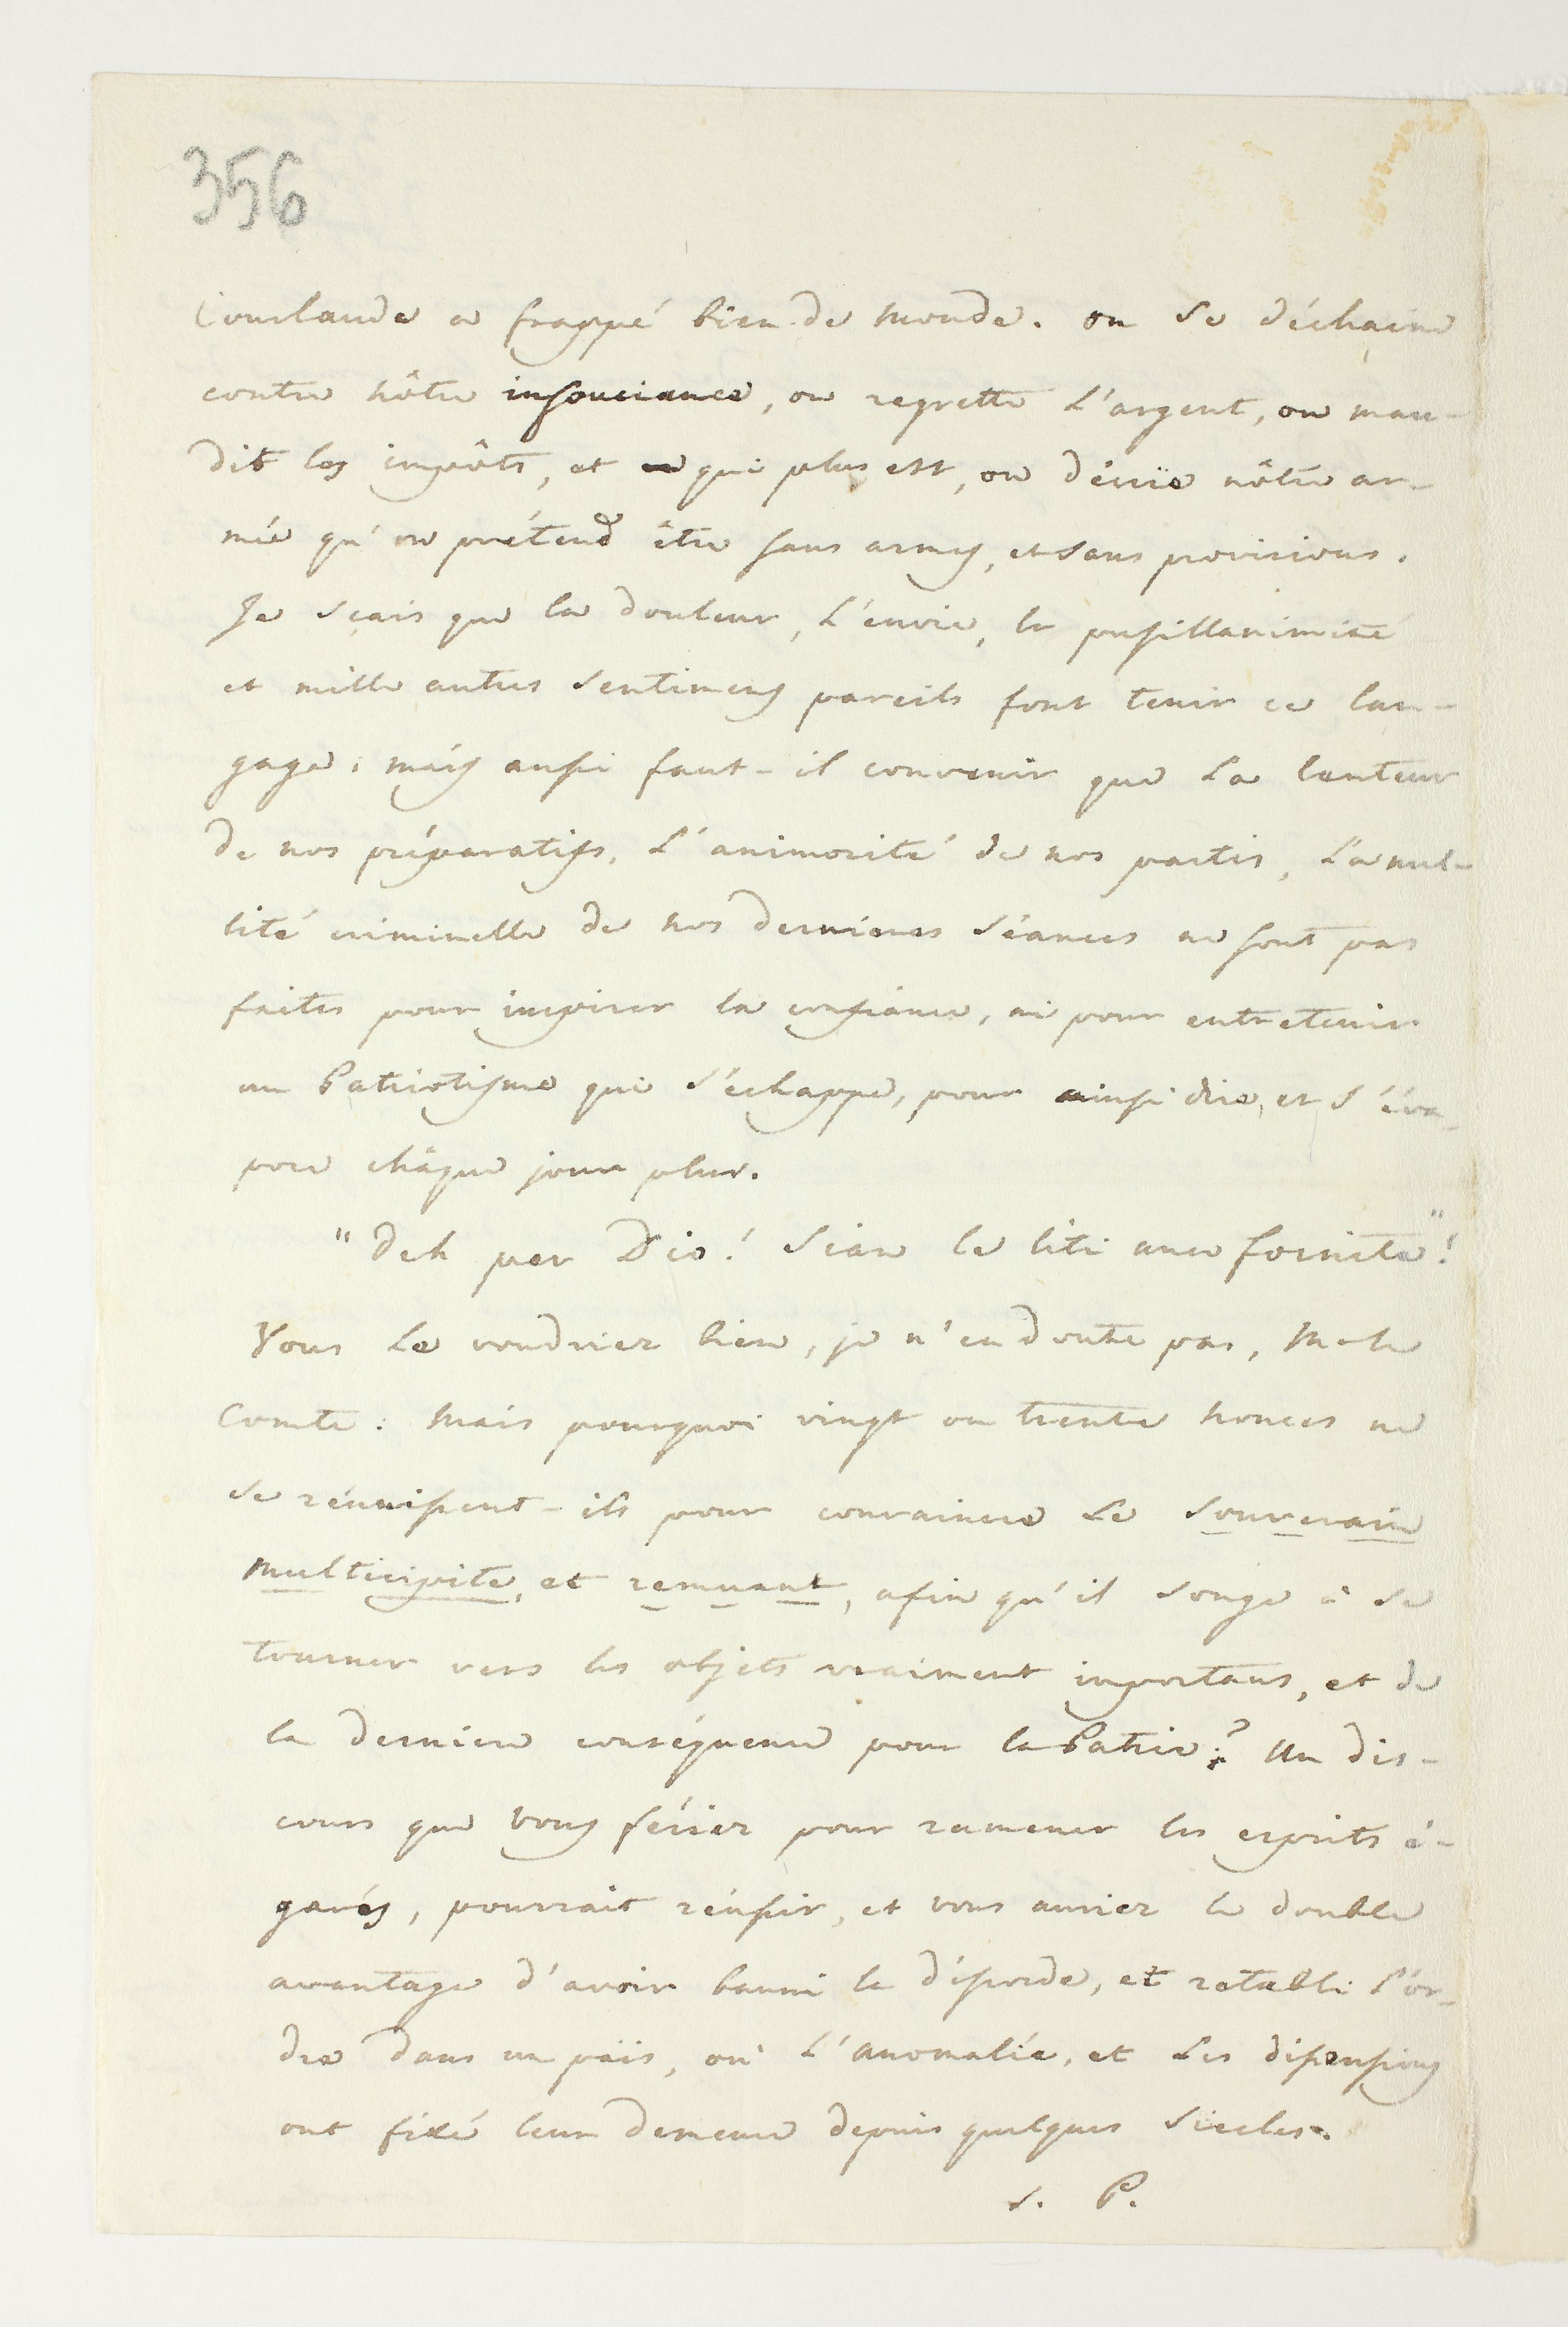 356
Courlande a frappé bien de monde. on se déchaine
contre nôtre insouciance, on regrette l'argent, on mau-
dit les impôts, et qui plus est, on décrïe nôtre ar-
mée qu'on prétend être sans armes, et sans provisions.
Je sçais que la douleur, l'envie, la pusillanimité
et mille autres sentimens pareils font tenir ce lan-
gage; mais aussi faut-il convenir que la lenteur
de nos préparatifs, l'animosité de nos partis, la nul-
lité criminelle de nos dernieres séances ne sont pas
faites pour inspirer la confiance, ni pour entretenir
un Patriotisme qui s'échappe, pour ainsi dire, et s'éva-
pore châque jour plus.
"Deh per Dio! Sian le liti una fornite"!
Vous le voudriez bien, je n'en doute pas, M-le
Comte: mais pourquoi vingt ou trente nonces ne
se réunissent-ils pour convaincre le souverain
multicipite, et remuant, afin qu'il songe à se
tourner vers les objets vraiment importans, et de
la derniere conséquence pour la Patrie? Un dis-
cours que vous fériez pour ramener les esprits é-
garés, pourrait réussir, et vous auriez le double
avantage d'avoir banni le désordre, et retabli l'or-
dre dans un païs, où l'anomalie, et les dissensions
ont fixé leur demeure depuis quelques siecles.
S. P.